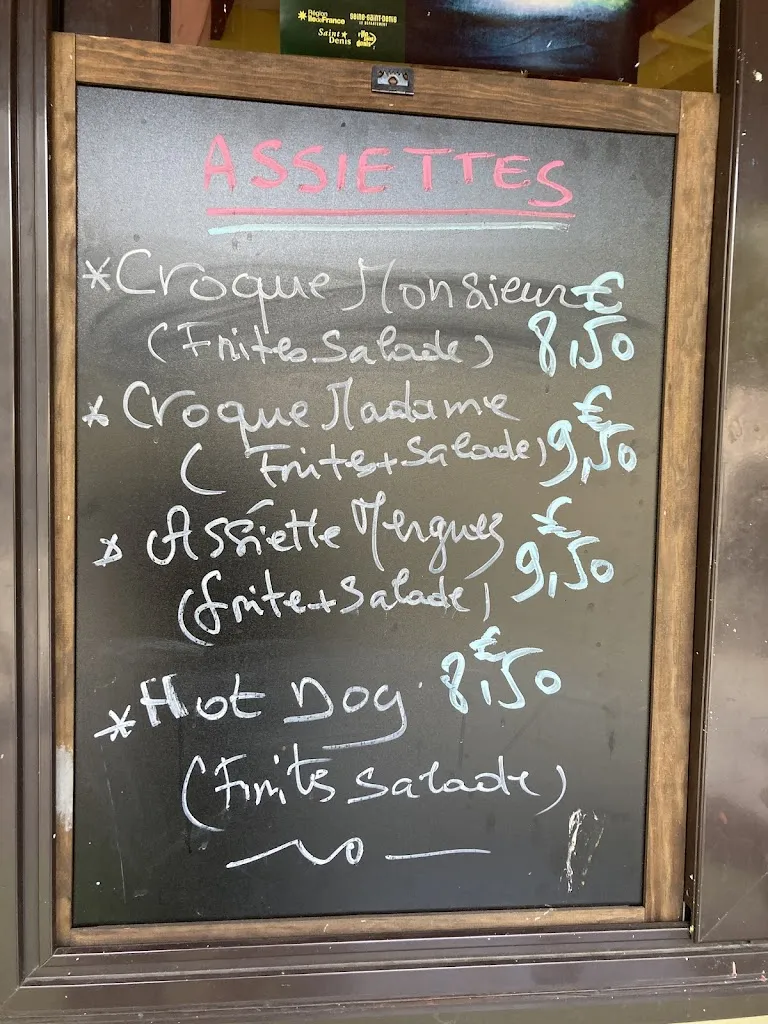 Région
îledeFrance
SEINE-SAINT-DENIS
LE DÉPARTEMENT
Saint
Denis
ASSIETTES
*Croque Monsieur €
(Frites Salade) 8,50
* Croque Madame €
( Frites+Salade) 9,50
* Assiette Merguez €
(frite+Salade) 9,50
*Hot Dog €
8,50
(Frites Salade)